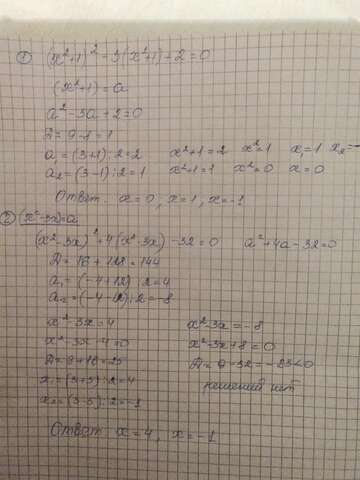 ① (x²+1)² - 3(x²+1)+2=0
(x²+1) = a
a² - 3a + 2 = 0
D = 9-8 = 1
a₁ = (3+1):2=2 x²+1=2 x²=1 x₁=1 x₂=-1
a₂ = (3-1):2=1 x²+1=1 x²=0 x=0
Ответ: x=0; x=1, x=-1
② (x²-3x)=a
(x²-3x)²+4(x²-3x)-32=0 a²+4a-32=0
D = 16 + 128 = 144
a₁ = (-4+12):2=4
a₂ = (-4-12):2=-8
x²-3x=4 x²-3x=-8
x²-3x-4=0 x²-3x+8=0
D = 9+16=25 D = 9-32=-23<0
x₁=(3+5):2=4 решений нет
x₂=(3-5):2=-1
Ответ: x=4, x=-1